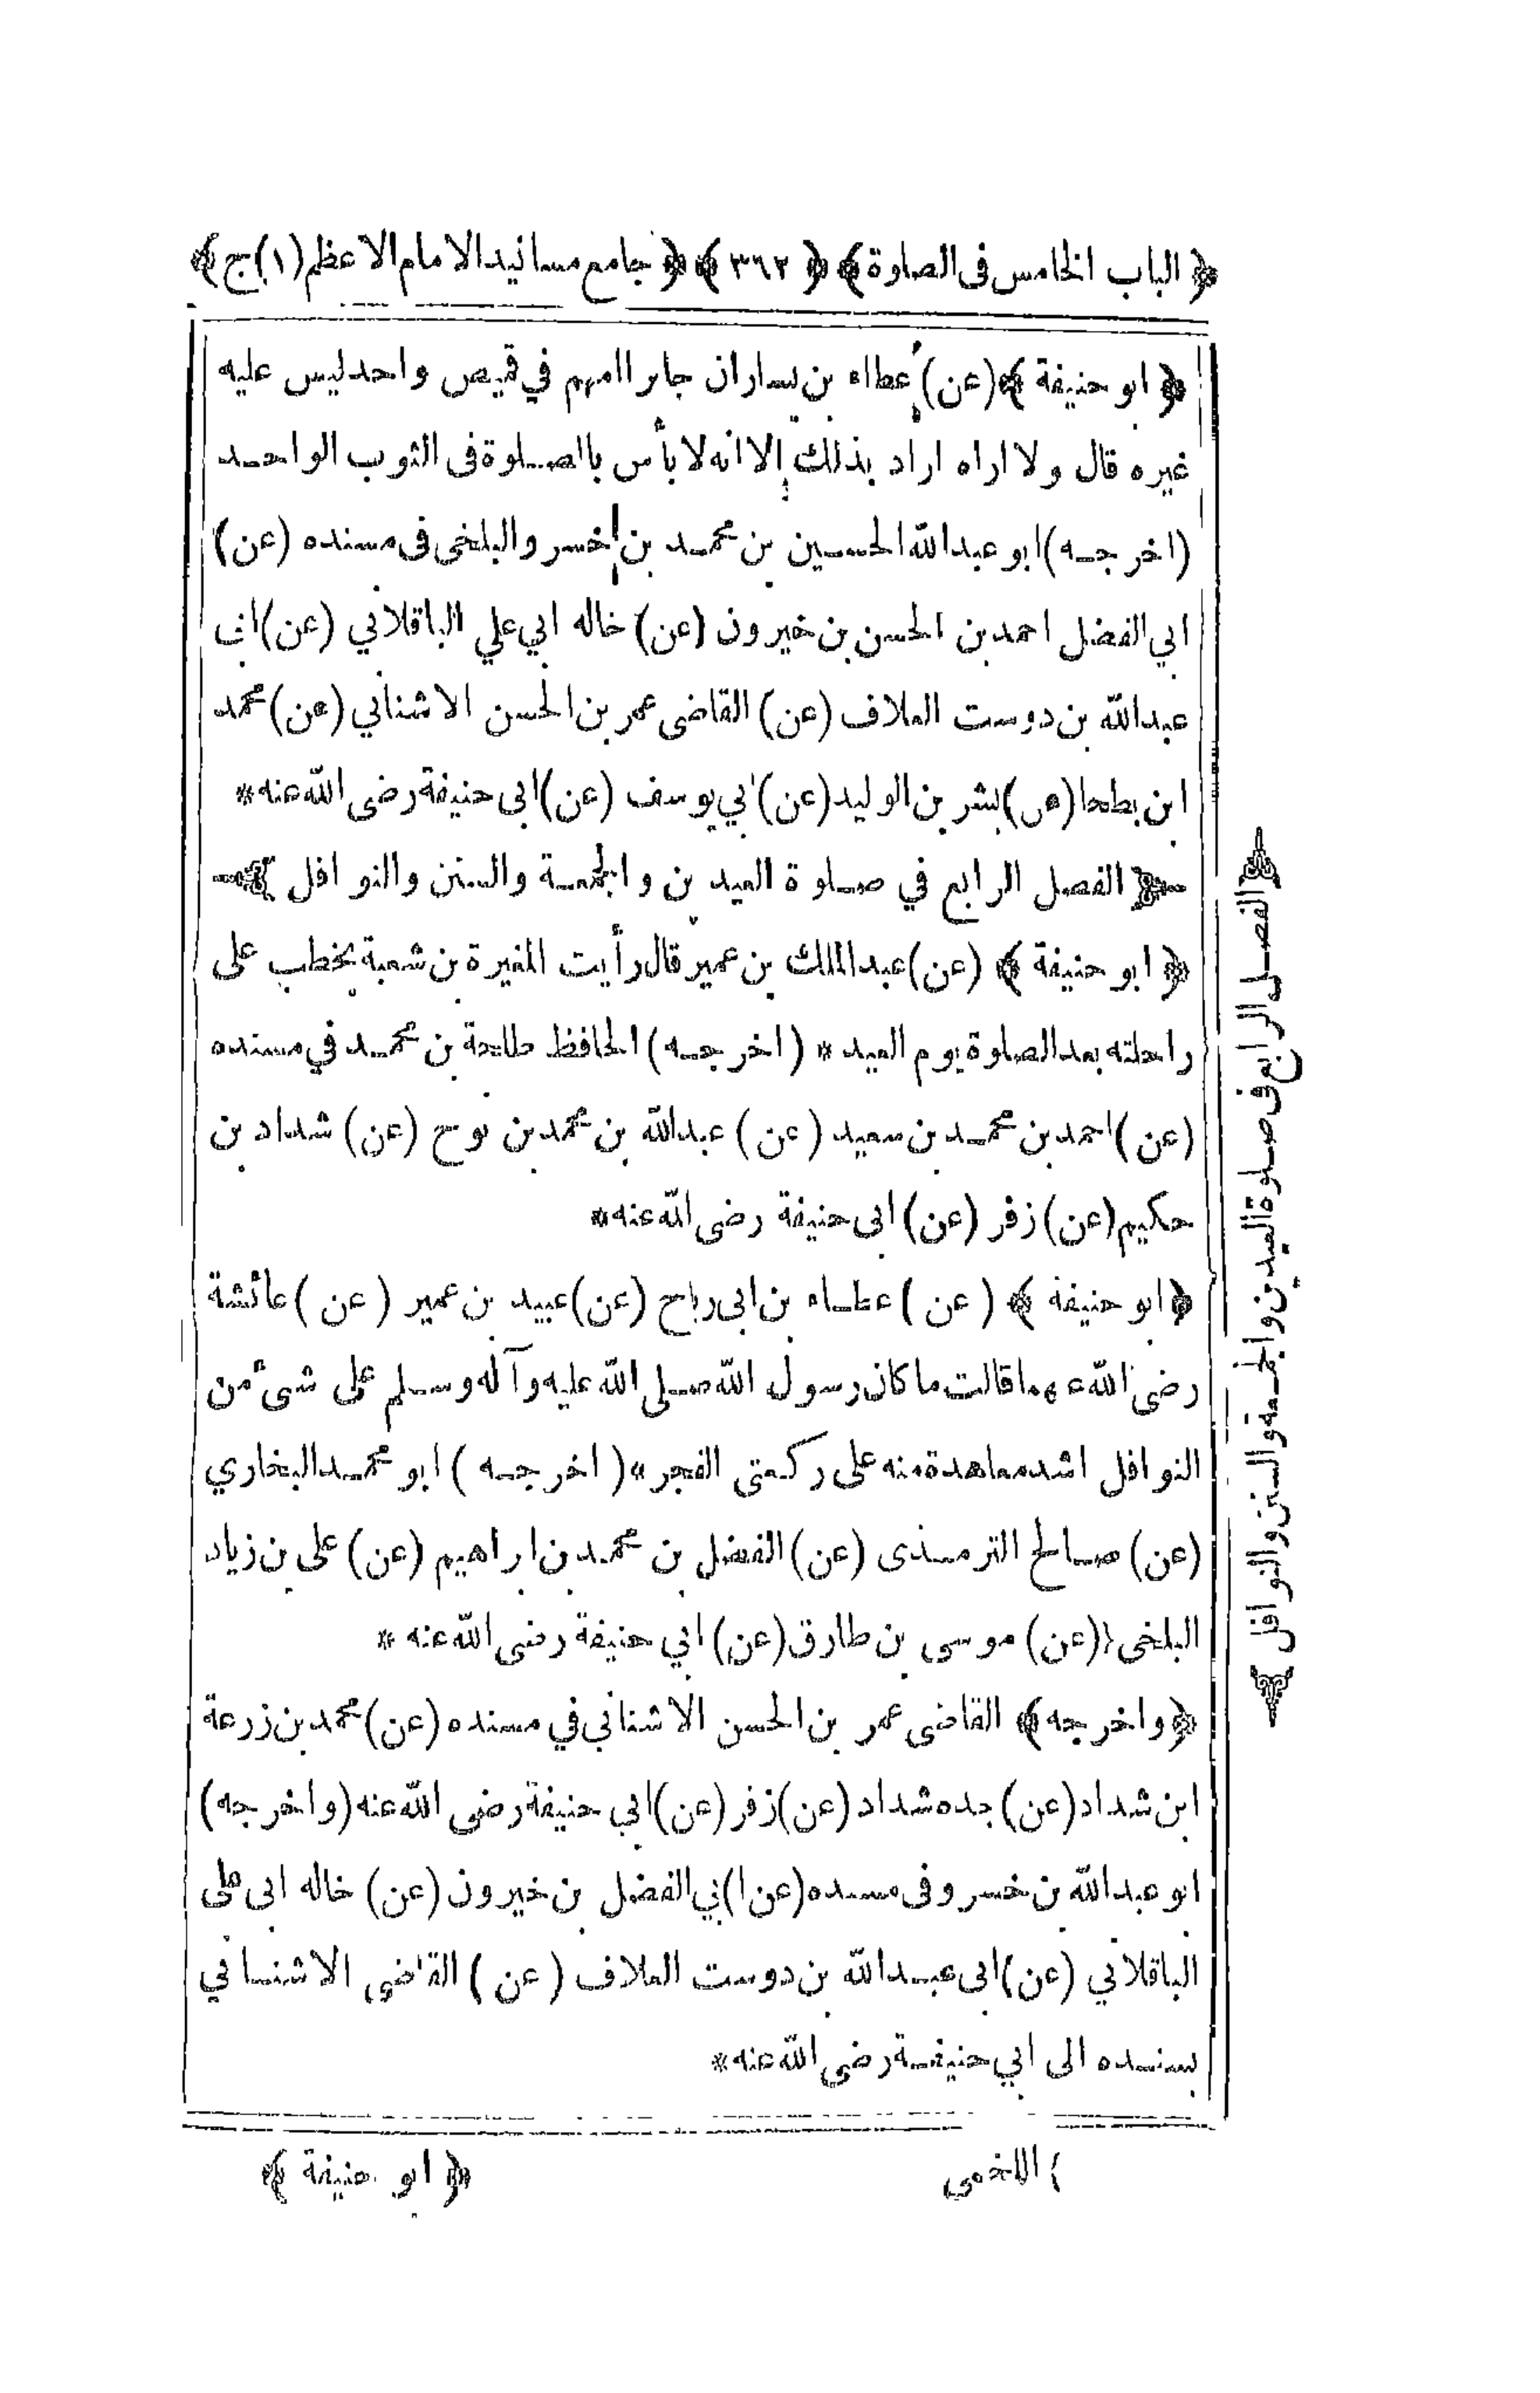 ﴿ الباب الخامس فى الصلوة ﴾ ﴿ ٣٦٢ ﴾ ﴿ جامع مسانيد الامام الاعظم (١) ج ﴾
﴿ ابو حنيفة ﴾ (عن) عطاء بن يسار ان جابرا امهم في قميص واحد ليس عليه
غيره قال ولا اراه اراد بذلك الا انه لا بأس بالصلوة فى الثوب الواحد
(اخرجه) ابو عبد الله الحسين بن محمد بن خسرو البلخى فى مسنده (عن)
ابي الفضل احمد بن الحسن بن خيرون (عن) خاله ابي علي الباقلاني (عن) ابى
عبد الله بن دوست العلاف (عن) القاضى عمر بن الحسن الاشناني (عن) محمد
ابن بطحا (عن) بشر بن الوليد (عن) ابي يوسف (عن) ابى حنيفة رضى الله عنه *
الفصل الرابع في صلوة العيدين والجمعة والسنن والنوافل
﴿ ابو حنيفة ﴾ (عن) عبد الملك بن عمير قال رأيت المغيرة بن شعبة يخطب على
راحلته بعد الصلوة يوم العيد * (اخرجه) الحافظ طلحة بن محمد في مسنده
(عن) احمد بن محمد بن سعيد (عن) عبد الله بن محمد بن نوح (عن) شداد بن
حكيم (عن) زفر (عن) ابى حنيفة رضى الله عنه *
﴿ ابو حنيفة ﴾ (عن) عطاء بن ابى رباح (عن) عبيد بن عمير (عن) عائشة
رضى الله عنها قالت ما كان رسول الله صلى الله عليه وآله وسلم على شئ من
النوافل اشد معاهدة منه على ركعتى الفجر * (اخرجه) ابو محمد البخاري
(عن) صالح الترمذى (عن) الفضل بن محمد بن ابراهيم (عن) على بن زياد
البلخى (عن) موسى بن طارق (عن) ابي حنيفة رضى الله عنه *
﴿ واخرجه ﴾ القاضى عمر بن الحسن الاشناني في مسنده (عن) محمد بن زرعة
ابن شداد (عن) جده شداد (عن) زفر (عن) ابي حنيفة رضى الله عنه (واخرجه)
ابو عبد الله بن خسرو فى مسنده (عن) ابي الفضل بن خيرون (عن) خاله ابى على
الباقلاني (عن) ابى عبد الله بن دوست العلاف (عن) القاضى الاشناني
بسنده الى ابي حنيفة رضى الله عنه *
﴿ ابو حنيفة ﴾
الفصل الرابع فى صلوة العيدين والجمعة والسنن والنوافل